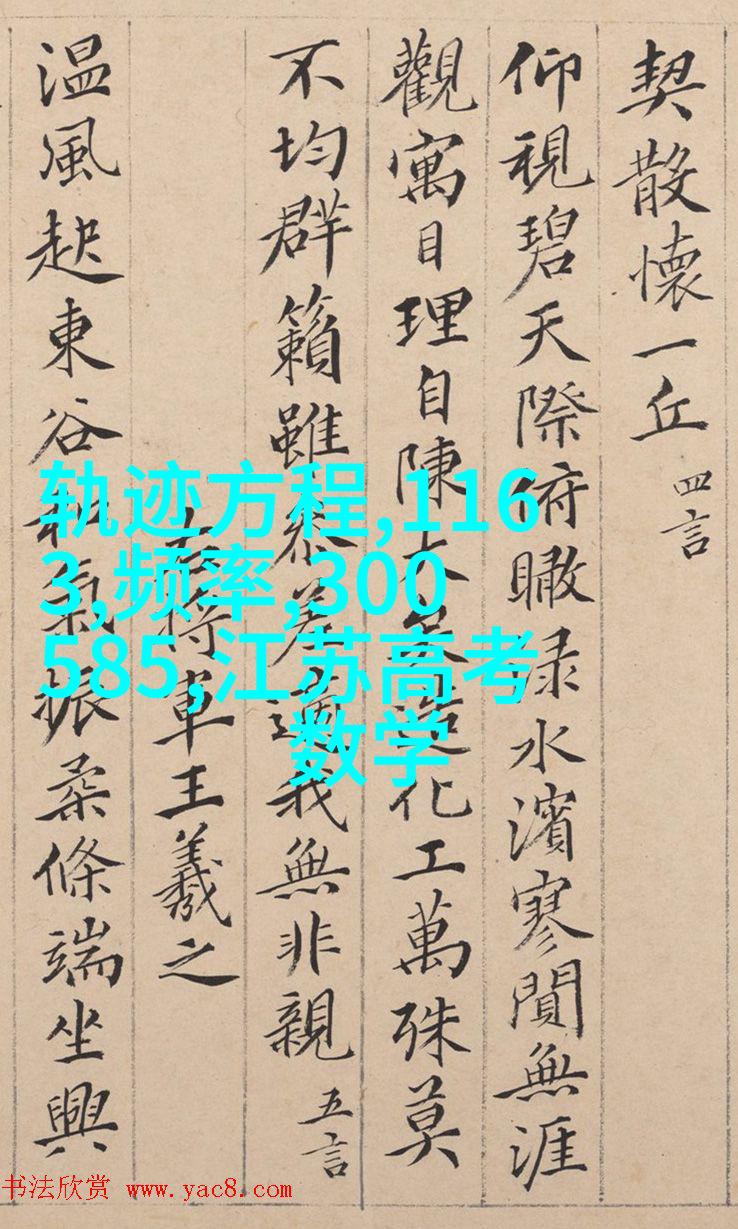 契散懷一丘 四言
仰視碧天際俯瞰渌水濱寥閴無涯
觀寓目理自陳大矣造化工萬殊莫
不均群籟雖參差適我無非親 五言
右將軍王羲之
温風起東谷和氣振柔條端坐興
轨迹方程,116
3,频率,300
585,江苏高考
数学
书法欣赏 www.yac8.com